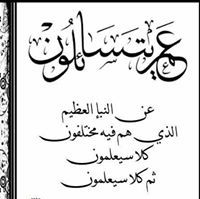 عم يتساءلون
عن النبإ العظيم
الذي هم فيه مختلفون
كلا سيعلمون
ثم كلا سيعلمون